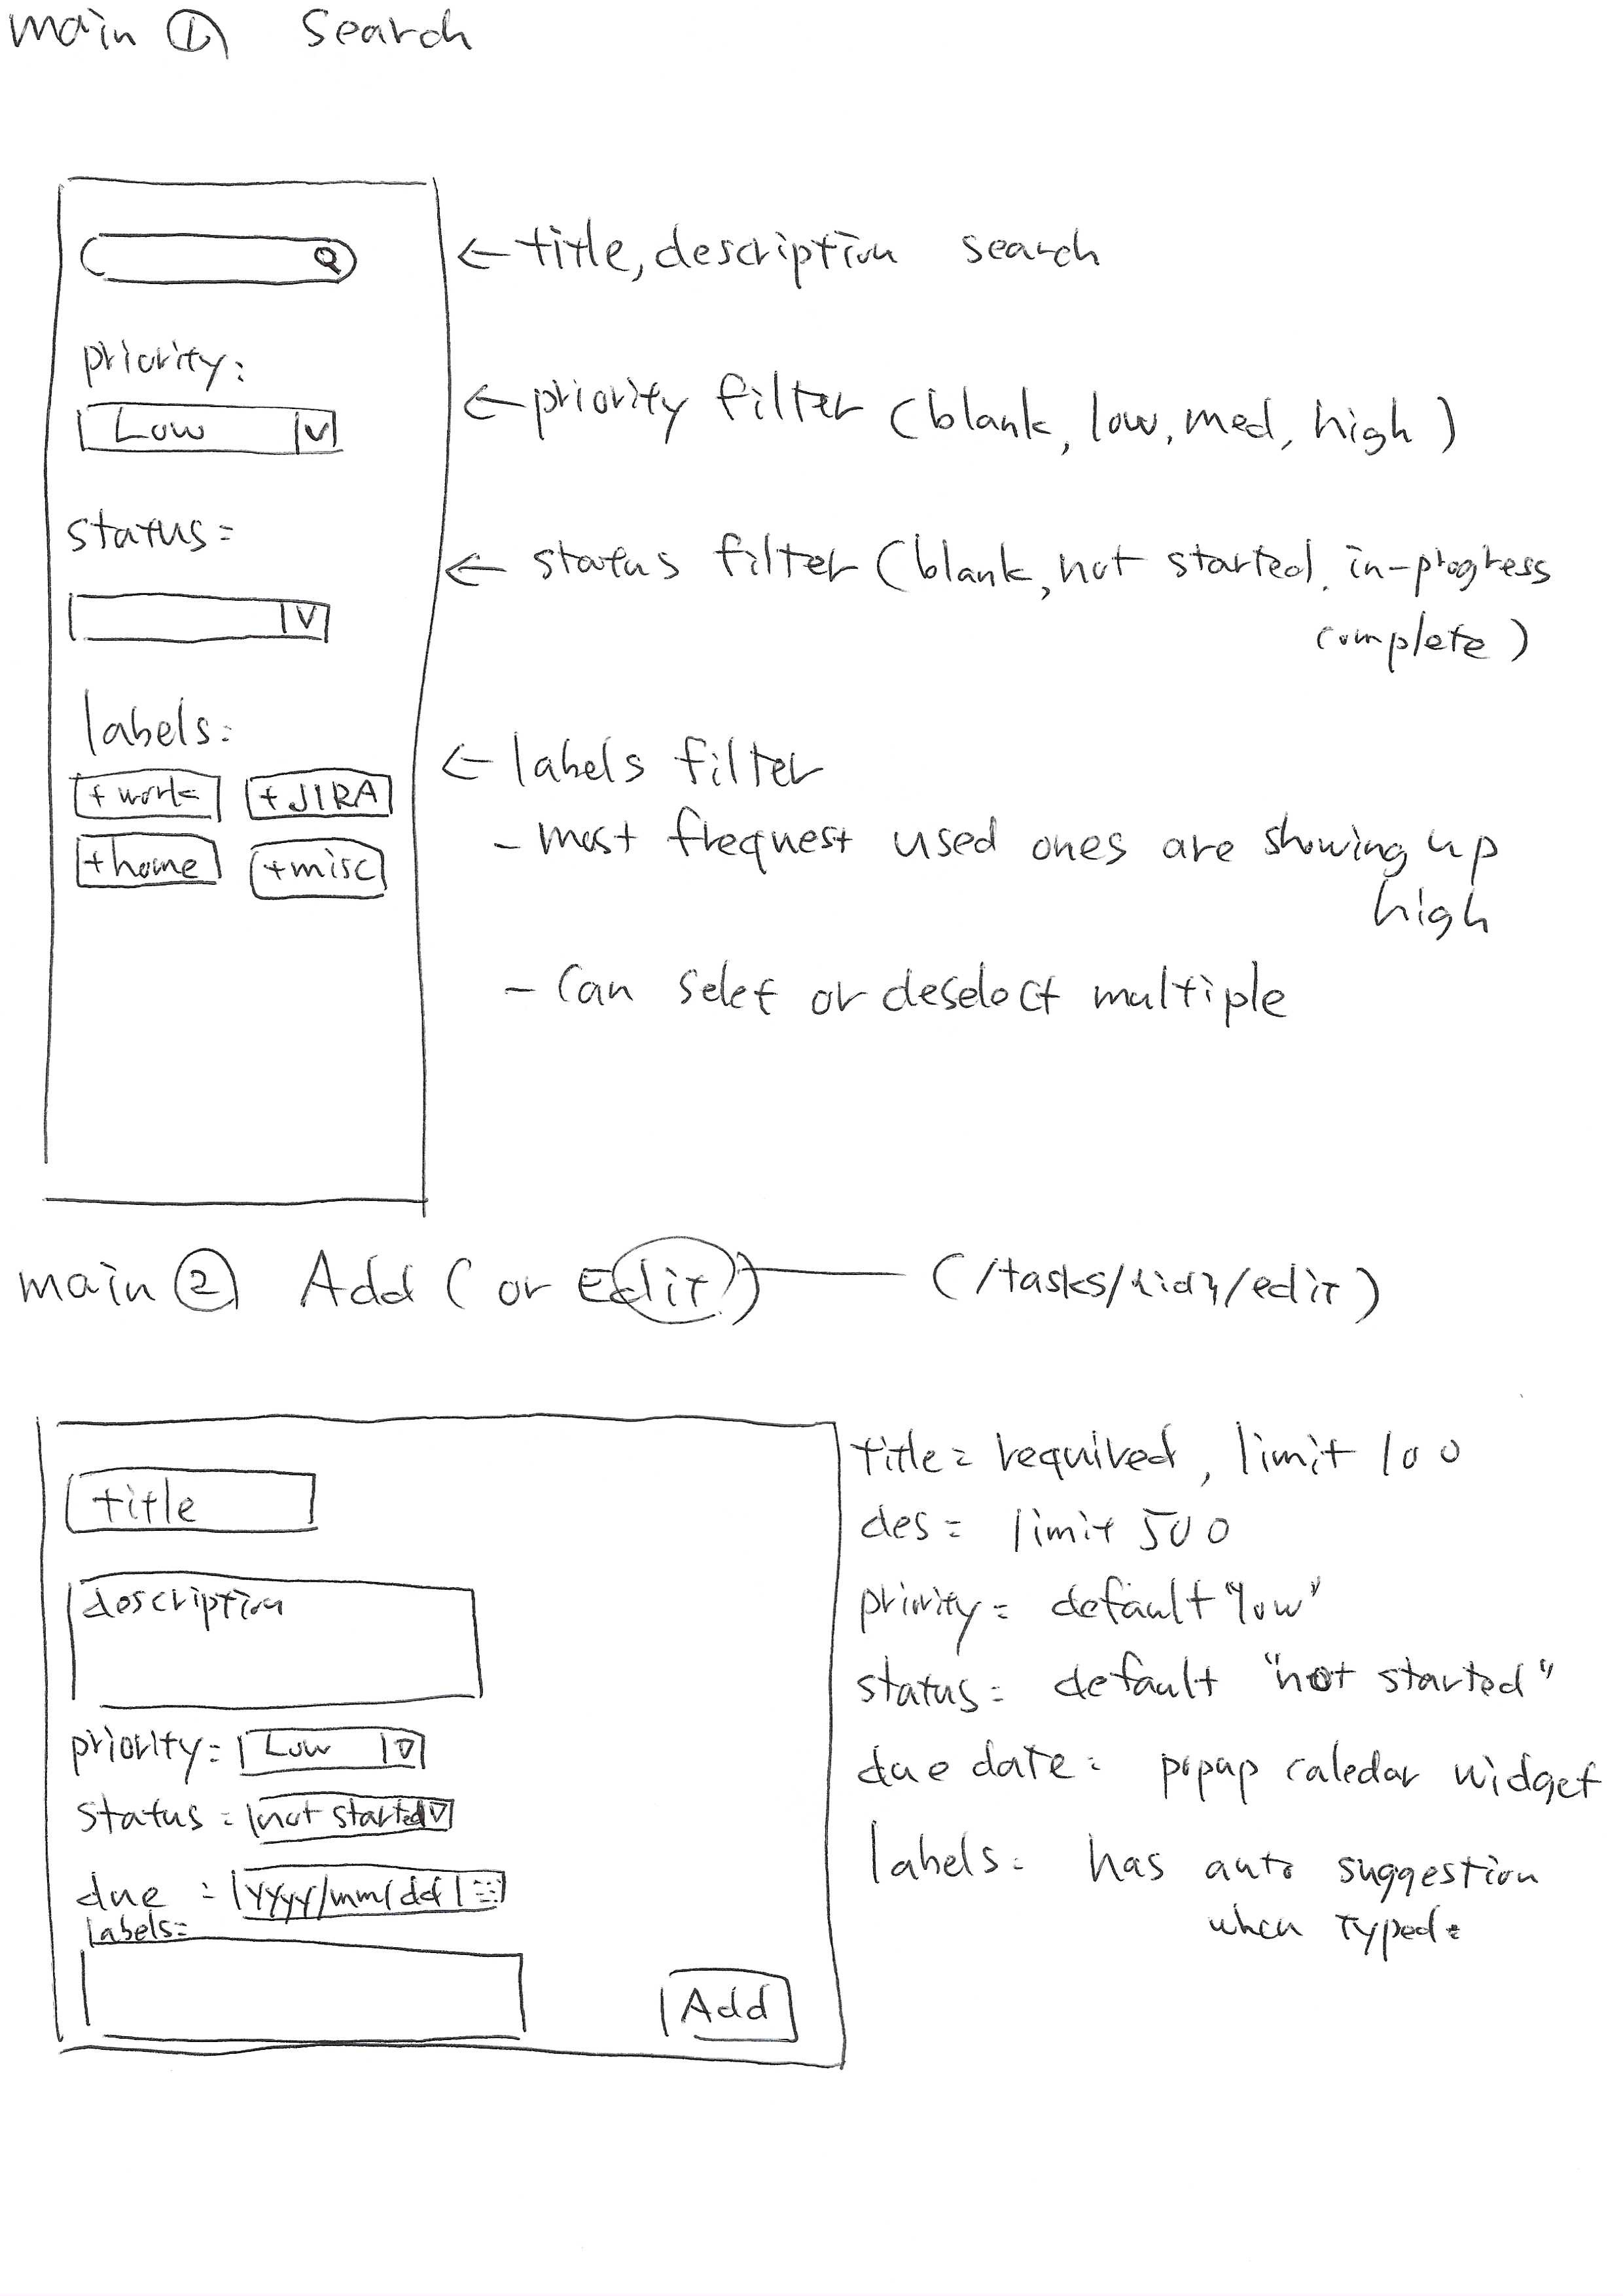 main ① Search
← title, description search
priority:
Low
← priority filter (blank, low, med, high)
status:
← status filter (blank, not started, in-progress
complete)
labels:
+ work + JIRA
+ home + misc
← labels filter
- most frequest used ones are showing up
high
- Can selet or deselect multiple
main ② Add (or Edit) — (/tasks/{id}/edit)
title
description
priority: Low
status: not started
due : yyyy/mm/dd
labels:
Add
title: required, limit 100
des: limit 500
priority: default "low"
status: default "not started"
due date: popup caledar widget
labels: has auto suggestion
when typed: